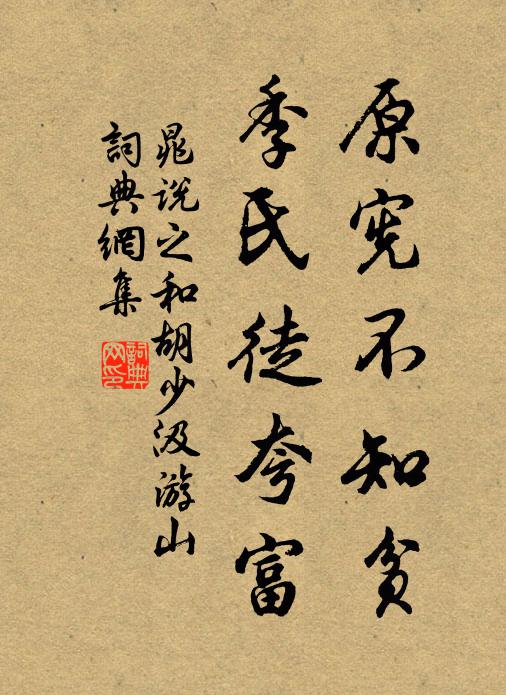 原宪不知贫
季氏徒夸富
晁说之和胡少汲游山
词典网集
词典网印